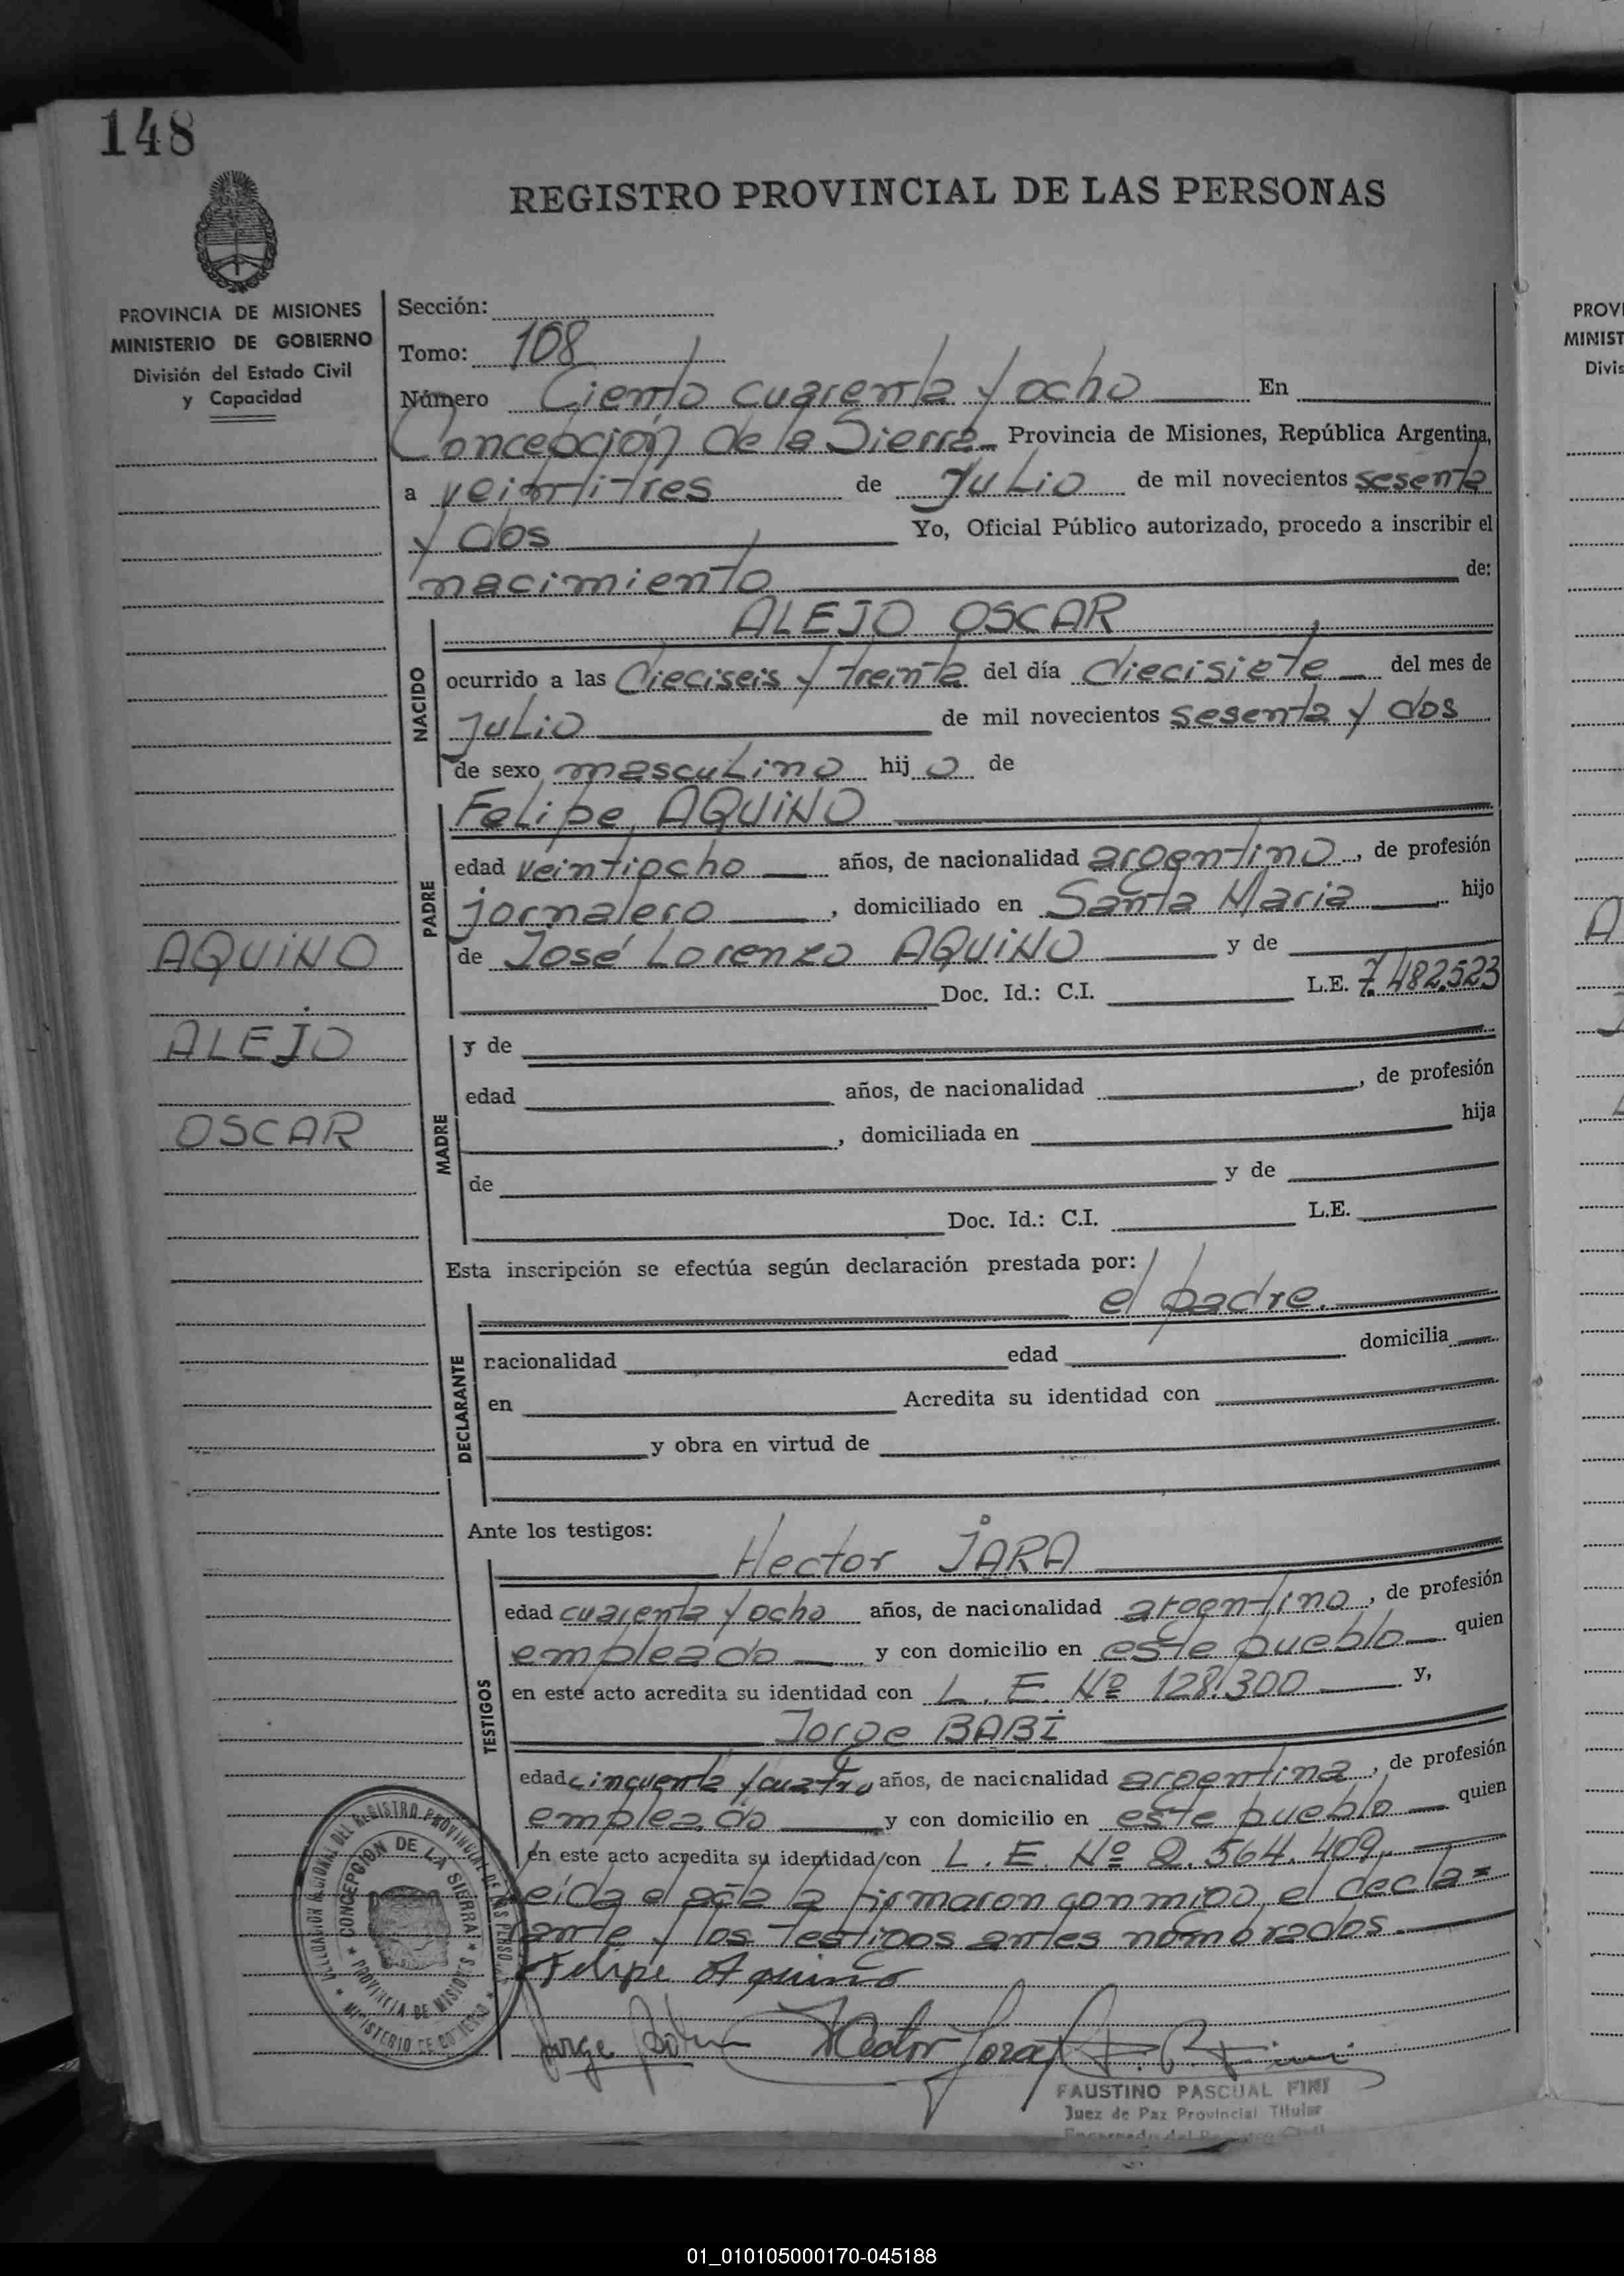 148
REGISTRO PROVINCIAL DE LAS PERSONAS
PROVINCIA DE MISIONES
MINISTERIO DE GOBIERNO
División del Estado Civil
y Capacidad
Sección:
Tomo: 108
Número Ciento cuarenta y ocho En
Concepción de la Sierra Provincia de Misiones, República Argentina,
a veintitres de Julio de mil novecientos sesenta
y dos Yo, Oficial Público autorizado, procedo a inscribir el
nacimiento de:
NACIDO
ALEJO OSCAR
ocurrido a las dieciseis y treinta del día diecisiete del mes de
Julio de mil novecientos sesenta y dos
de sexo masculino hijo de
PADRE
Felipe AQUINO
edad veintiocho años, de nacionalidad argentino, de profesión
jornalero, domiciliado en Santa Maria hijo
de José Lorenzo AQUINO y de
Doc. Id.: C.I. L.E. 7.482.523
AQUINO
ALEJO
OSCAR
MADRE
y de
edad años, de nacionalidad , de profesión
, domiciliada en hija
de y de
Doc. Id.: C.I. L.E.
Esta inscripción se efectúa según declaración prestada por:
DECLARANTE
el padre.
nacionalidad edad domicilia
en Acredita su identidad con
y obra en virtud de
Ante los testigos:
TESTIGOS
Hector JARA
edad cuarenta y ocho años, de nacionalidad argentino, de profesión
empleado y con domicilio en este pueblo quien
en este acto acredita su identidad con L. E. Nº 128.300 y,
Jorge BABI
edad cincuenta y cuatro años, de nacionalidad argentina, de profesión
empleado y con domicilio en este pueblo quien
en este acto acredita su identidad con L. E. Nº 2.564.409.
eida el acta la firmaron conmigo, el decla=
rante y los testigos antes nombrados.
Felipe Aquino
Jorge Hector Jara F. P. Fini
FAUSTINO PASCUAL FINI
Juez de Paz Provincial Titular
CONCEPCION DE LA SIERRA
PROVINCIA DE MISIONES
MINISTERIO DE GOBIERNO
PROVI
MINIST
Divis
A
01_010105000170-045188